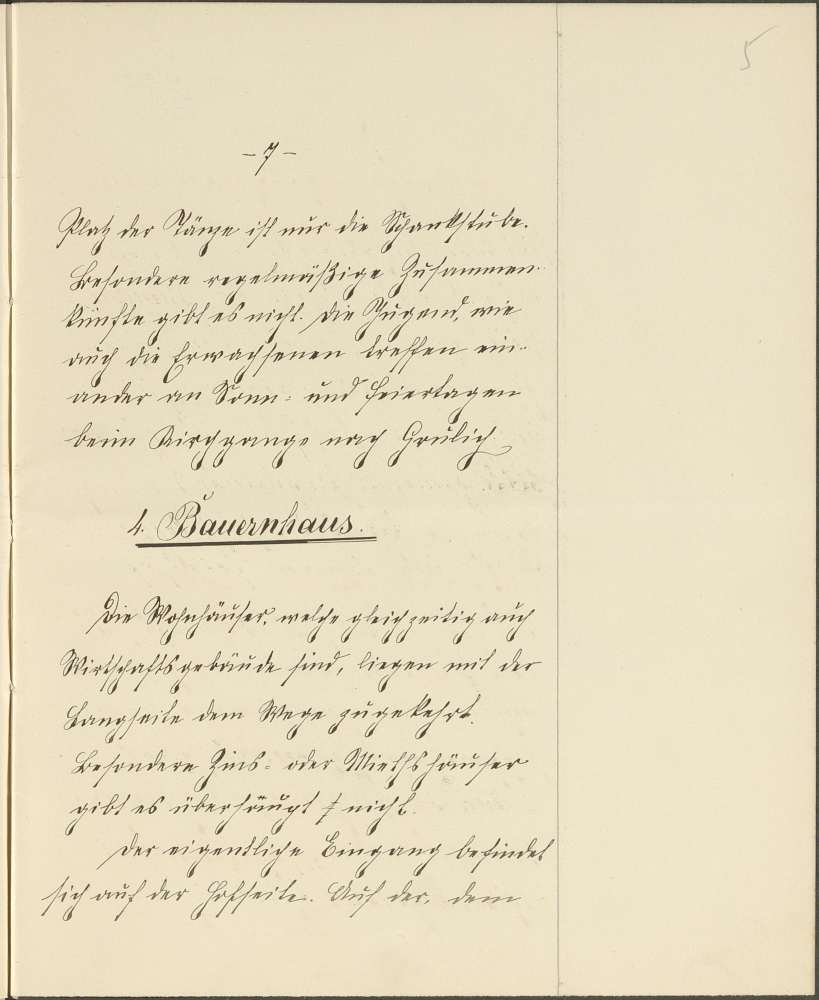 5
- 7 -
Platz der Tänze ist nur die Schankstube.
Besondere regelmäßige Zusammen-
künfte gibt es nicht. Die Jugend, wie
auch die Erwachsenen treffen ein-
ander an Sonn- und Feiertagen
beim Kirchgange nach Grulich.
4. Bauernhaus.
Die Wohnhäuser, welche gleichzeitig auch
Wirtschaftsgebäude sind, liegen mit der
Langseite dem Wege zugekehrt.
Besondere Zins- oder Miethshäuser
gibt es überhaupt nicht.
Der eigentliche Eingang befindet
sich auf der Hofseite. Auf der, dem